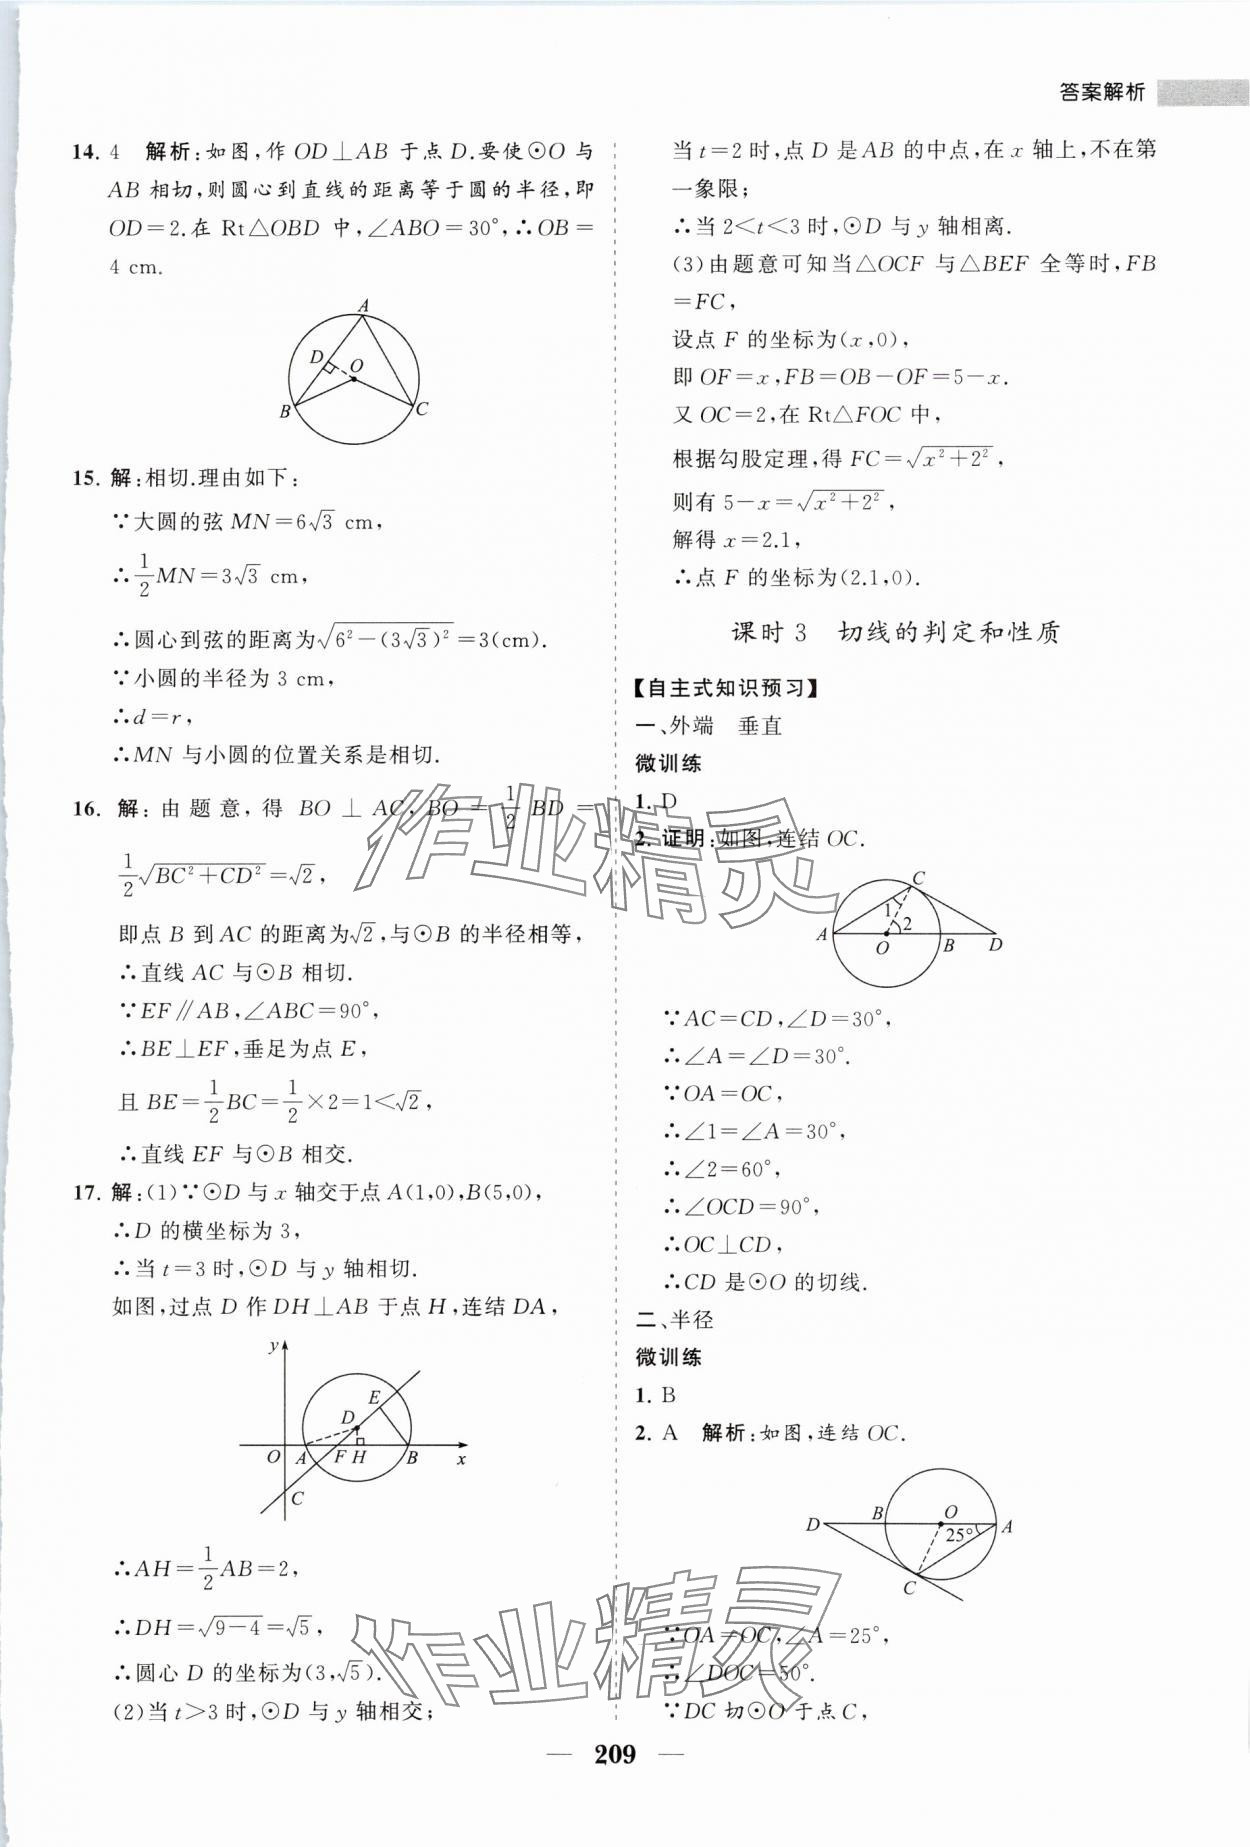 答案解析
14. 4 解析:如图,作 OD⊥AB 于点 D.要使⊙O 与
AB 相切,则圆心到直线的距离等于圆的半径,即
OD=2.在 Rt△OBD 中,∠ABO=30°,∴OB=
4 cm.
A
D
O
B
C
15. 解:相切.理由如下:
∵大圆的弦 MN=6√3 cm,
∴1/2MN=3√3 cm,
∴圆心到弦的距离为√(6²-(3√3)²)=3(cm).
∵小圆的半径为 3 cm,
∴d=r,
∴MN 与小圆的位置关系是相切.
16. 解:由题意,得 BO⊥AC,BO=1/2 BD=
1/2√(BC²+CD²)=√2,
即点 B 到 AC 的距离为√2,与⊙B 的半径相等,
∴直线 AC 与⊙B 相切.
∵EF∥AB,∠ABC=90°,
∴BE⊥EF,垂足为点 E,
且 BE=1/2BC=1/2×2=1<√2,
∴直线 EF 与⊙B 相交.
17. 解:(1)∵⊙D 与 x 轴交于点 A(1,0),B(5,0),
∴D 的横坐标为 3,
∴当 t=3 时,⊙D 与 y 轴相切.
如图,过点 D 作 DH⊥AB 于点 H,连结 DA,
y
E
D
O A F H B x
C
∴AH=1/2AB=2,
∴DH=√(9-4)=√5,
∴圆心 D 的坐标为(3,√5).
(2)当 t>3 时,⊙D 与 y 轴相交;
当 t=2 时,点 D 是 AB 的中点,在 x 轴上,不在第
一象限;
∴当 2<t<3 时,⊙D 与 y 轴相离.
(3)由题意可知当△OCF 与△BEF 全等时,FB
=FC,
设点 F 的坐标为(x,0),
即 OF=x,FB=OB-OF=5-x.
又 OC=2,在 Rt△FOC 中,
根据勾股定理,得 FC=√(x²+2²),
则有 5-x=√(x²+2²),
解得 x=2.1,
∴点 F 的坐标为(2.1,0).
课时 3 切线的判定和性质
【自主式知识预习】
一、外端 垂直
微训练
1. D
2. 证明:如图,连结 OC.
C
1
2
A O B D
∵AC=CD,∠D=30°,
∴∠A=∠D=30°.
∵OA=OC,
∴∠1=∠A=30°,
∴∠2=60°,
∴∠OCD=90°,
∴OC⊥CD,
∴CD 是⊙O 的切线.
二、半径
微训练
1. B
2. A 解析:如图,连结 OC.
D B O A
25°
C
∵OA=OC,∠A=25°,
∴∠DOC=50°.
∵DC 切⊙O 于点 C,
作业精灵
作业精灵
— 209 —